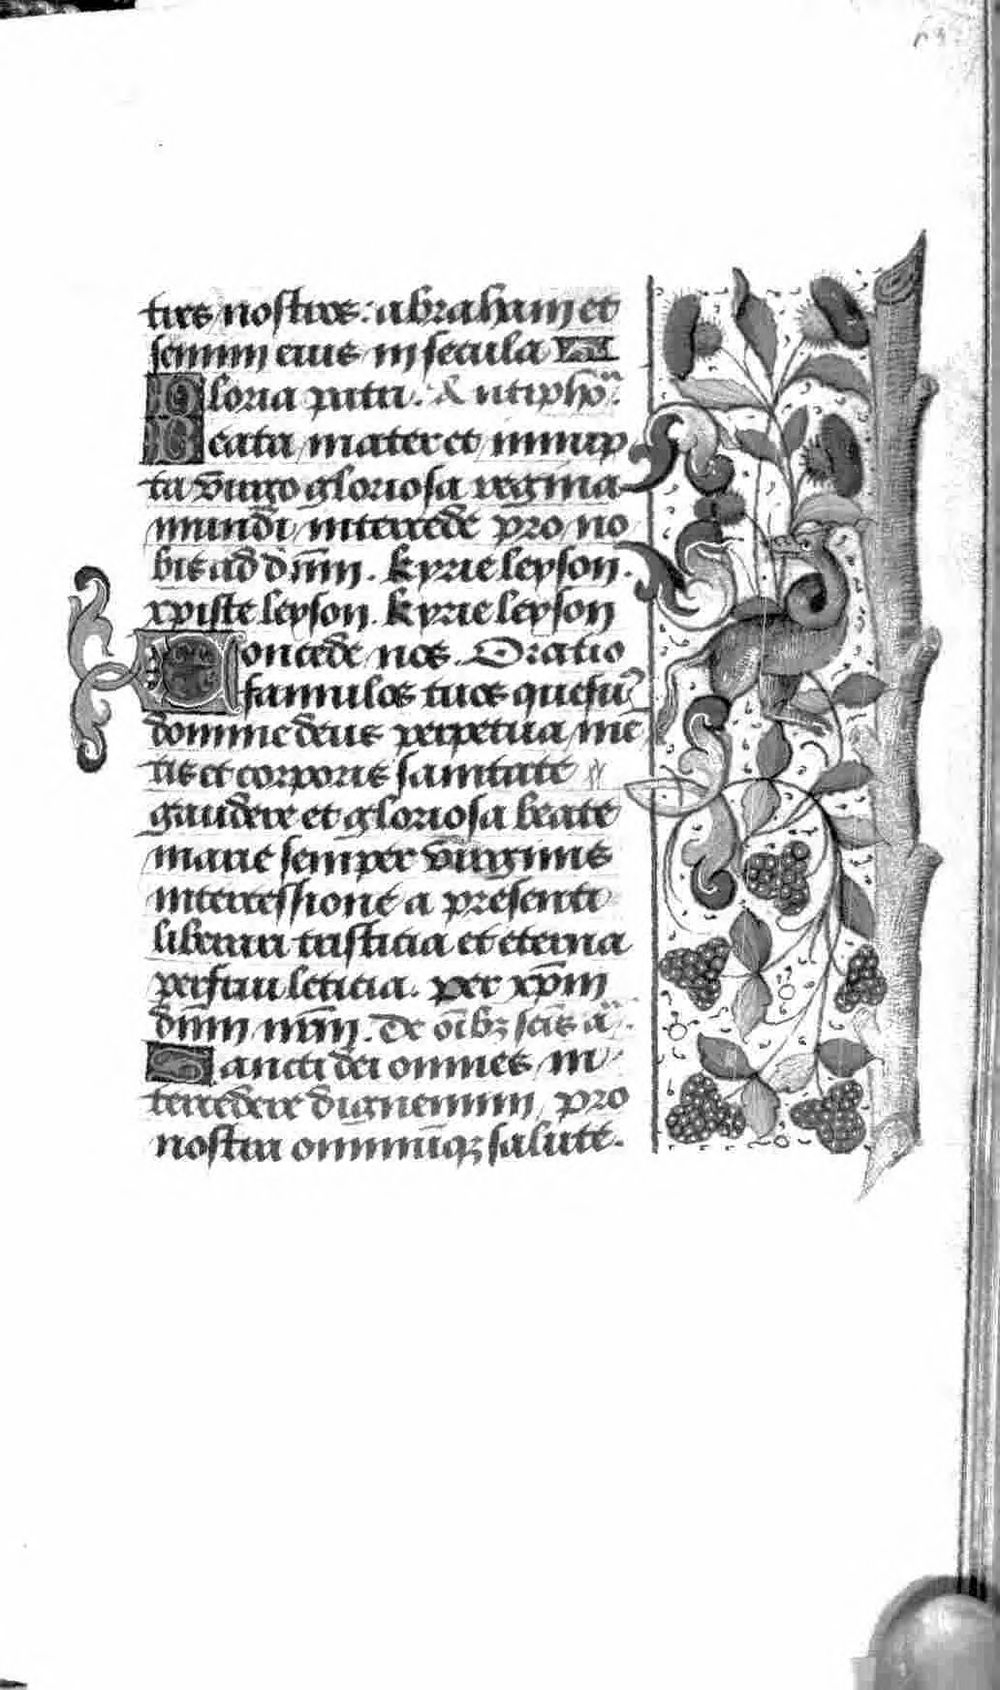 tres nostros: abraham et
semini eius in secula
Gloria patri. Antipho.
Beata mater et innup
ta virgo gloriosa regina
mundi intercede pro no
bis ad dnm. kyrie leyson.
xpiste leyson. kyrie leyson
Concede nos. Oratio
famulos tuos quesum
domine deus perpetua me
tis et corporis sanitate
gaudere et gloriosa beate
marie semper virginis
intercessione a presenti
liberari tristicia et eterna
perfrui leticia. per xpm
dnm nrm. De oibz scis a.
Sancti dei omnes in
tercedere dignemini pro
nostra omniuqz salute.